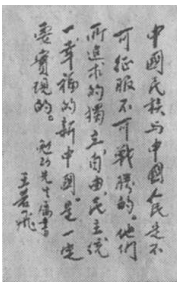 中國民族与中國人民是不
可征服不可戰勝的。他們
所追求的獨立自由民主統
一幸福的新中國。是一定
要實現的。
先生属書
王若飛